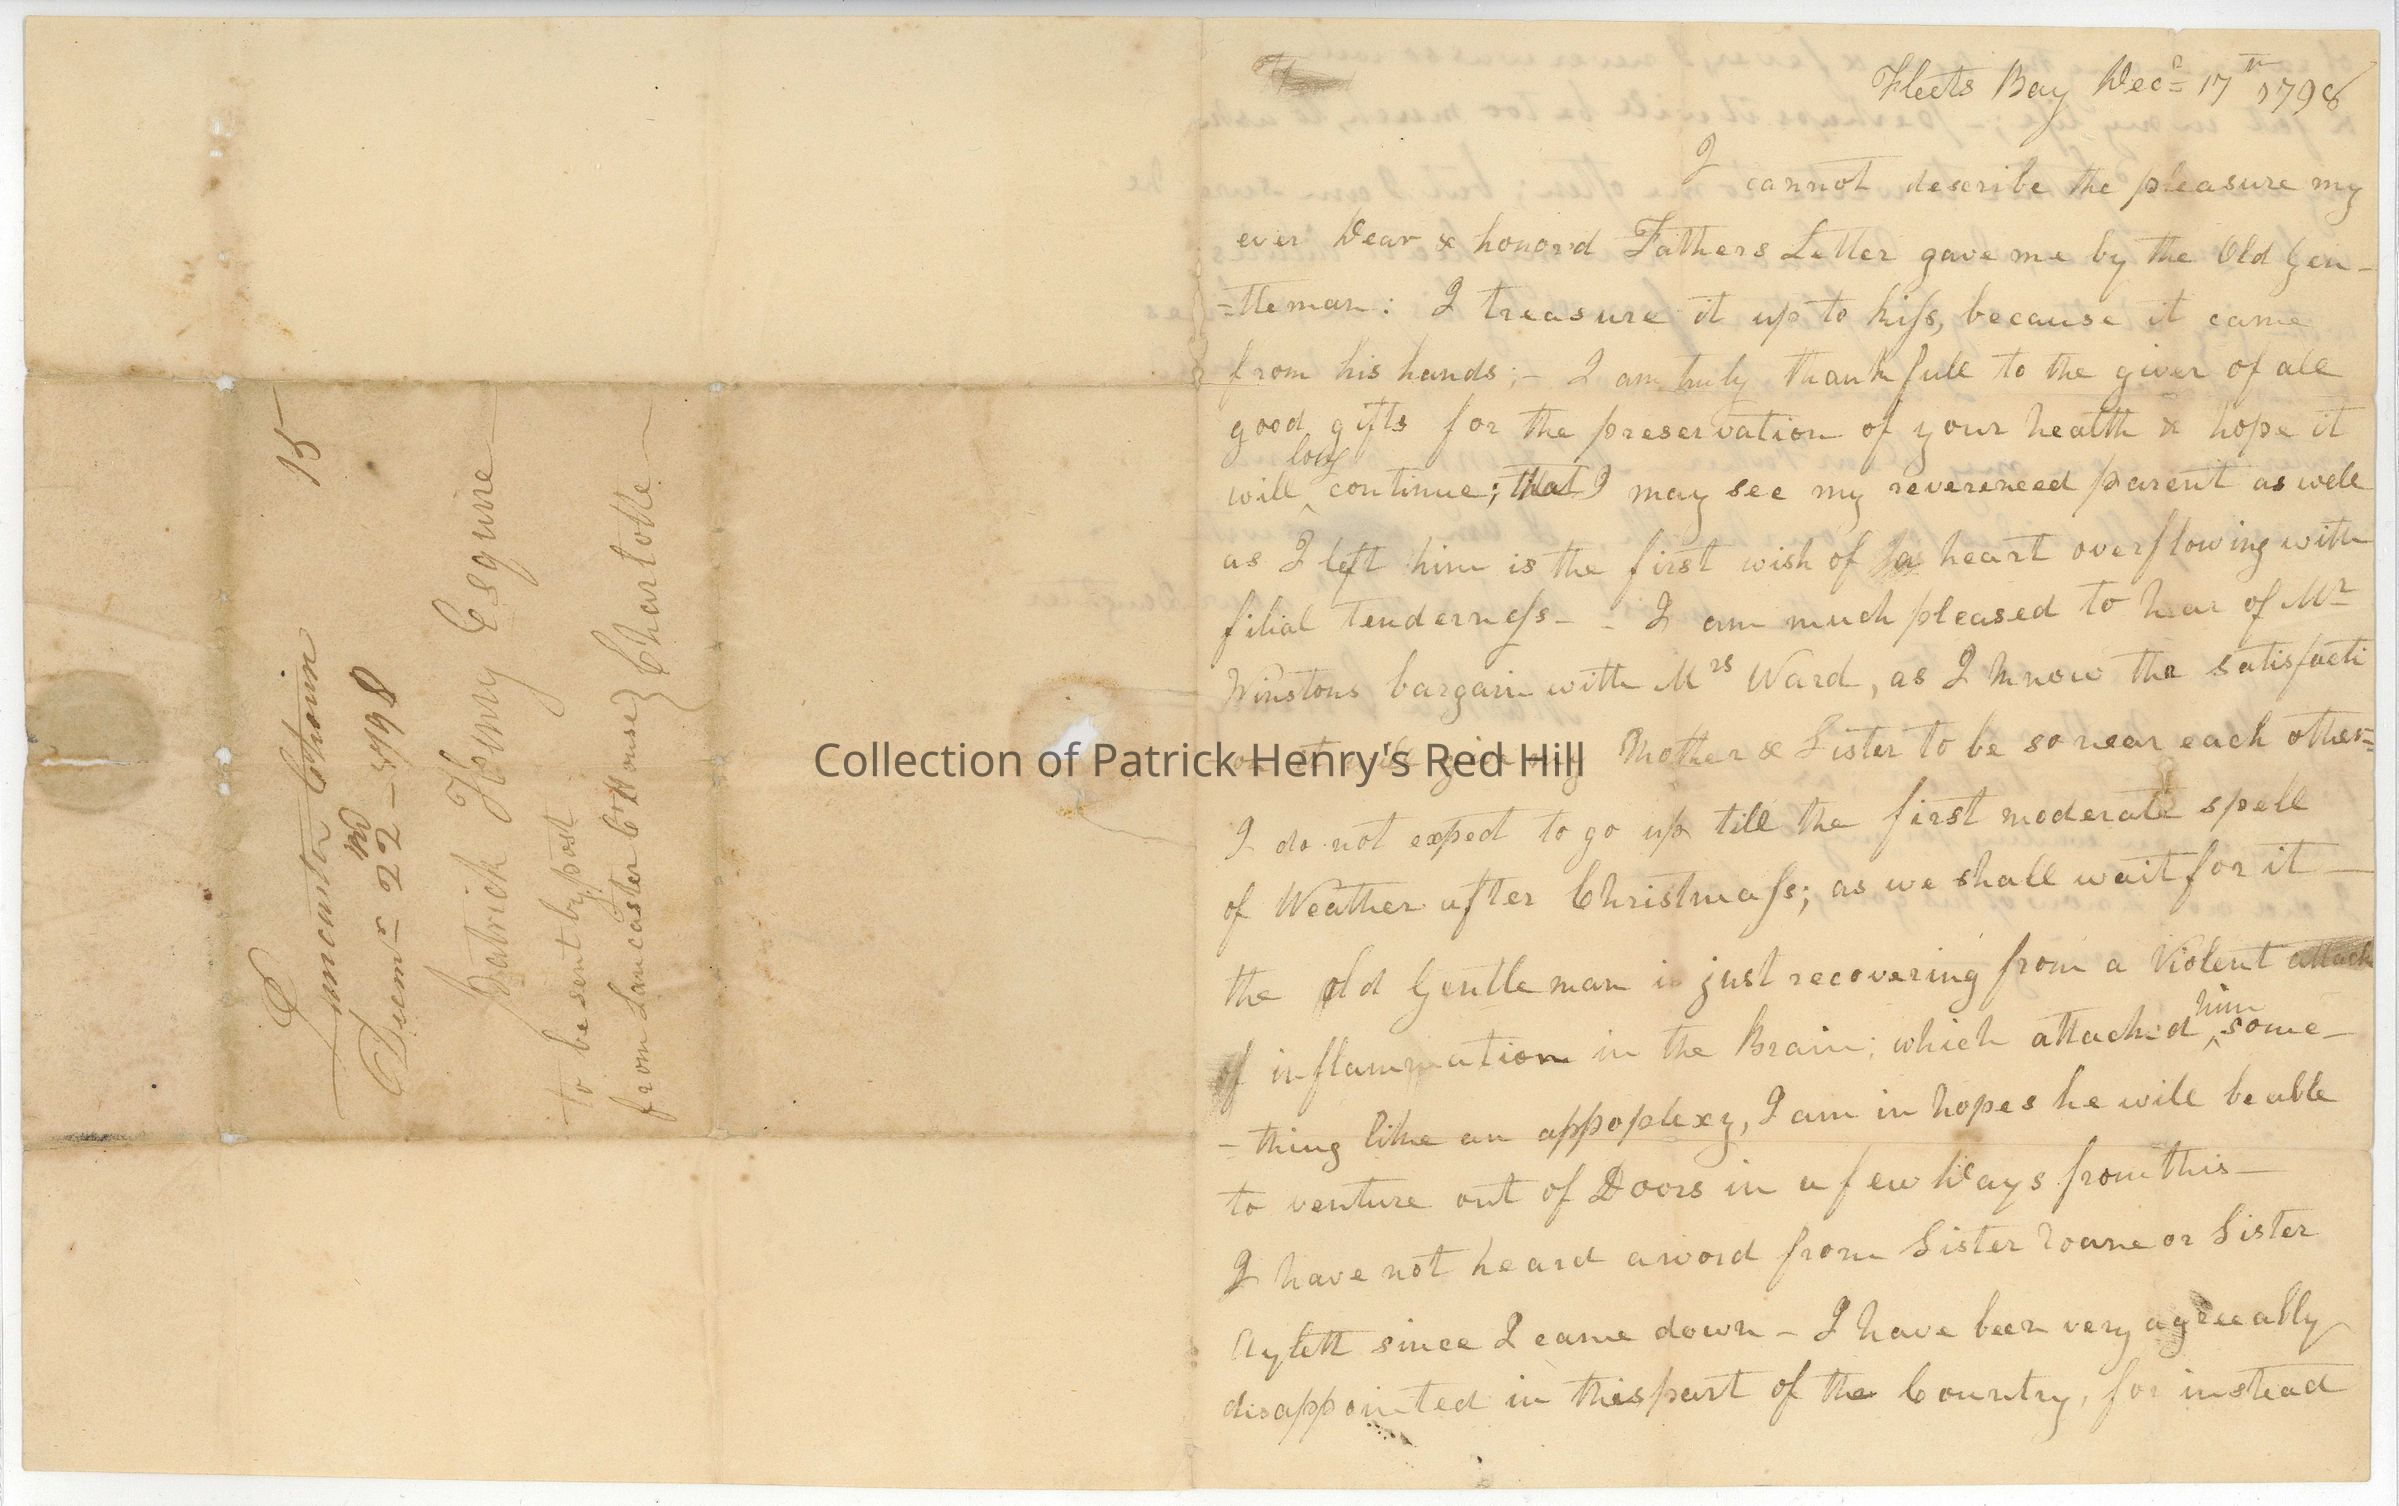 Lancaster Cthouse
Decemr 22nd 1798
15
Patrick Henry Esquire
to be sent by post
from Lancaster Ct House} Charlotte
Collection of Patrick Henry's Red Hill
Fleets Bay Decr 17th 1798
I cannot describe the pleasure my
ever Dear & honor'd Fathers Letter gave me by the Old Gen-
=tleman: I treasure it up to kiss, because it came
from his hands;- I am truly thankfull to the giver of all
good gifts for the preservation of your health & hope it
will long continue; that I may see my reverenced parent as well
as I left him is the first wish of a heart overflowing with
filial tenderness - - I am much pleased to hear of Mr
Winstons bargain with Mrs Ward, as I know the satisfacti
on it will give my Mother & Sister to be so near each other=
I do not expect to go up till the first moderate spell
of Weather after Christmass; as we shall wait for it —
the old Gentleman is just recovering from a Violent attack
of inflammation in the Brain; which attacked him some-
-thing like an appoplexy, I am in hopes he will be able
to venture out of Doors in a few Days from this —
I have not heard a word from Sister Roane or Sister
Aylett since I came down - I have been very agreeably
disappointed in this part of the Country, for instead